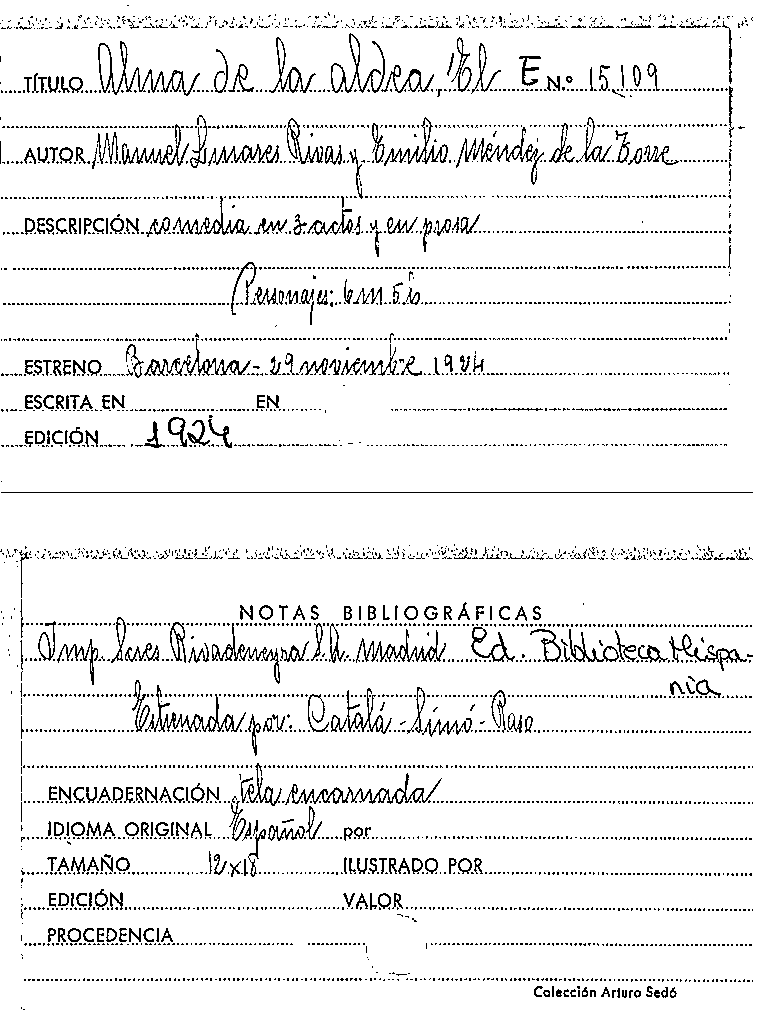 TÍTULO Alma de la aldea, El E N.º 15.109
AUTOR Manuel Linares Rivas y Emilio Méndez de la Torre
DESCRIPCIÓN comedia en 3 actos y en prosa
Personajes: 6m 5h
ESTRENO Barcelona - 29 noviembre 1924
ESCRITA EN EN
EDICIÓN 1924
NOTAS BIBLIOGRÁFICAS
Imp. Sucs Rivadeneyra S.A. Madrid Ed. Biblioteca Hispa-
nia
Estrenada por: Catalá - Simó - Raso
ENCUADERNACIÓN tela encarnada
IDIOMA ORIGINAL Español por
TAMAÑO 12x18 ILUSTRADO POR
EDICIÓN VALOR
PROCEDENCIA
Colección Arturo Sedó